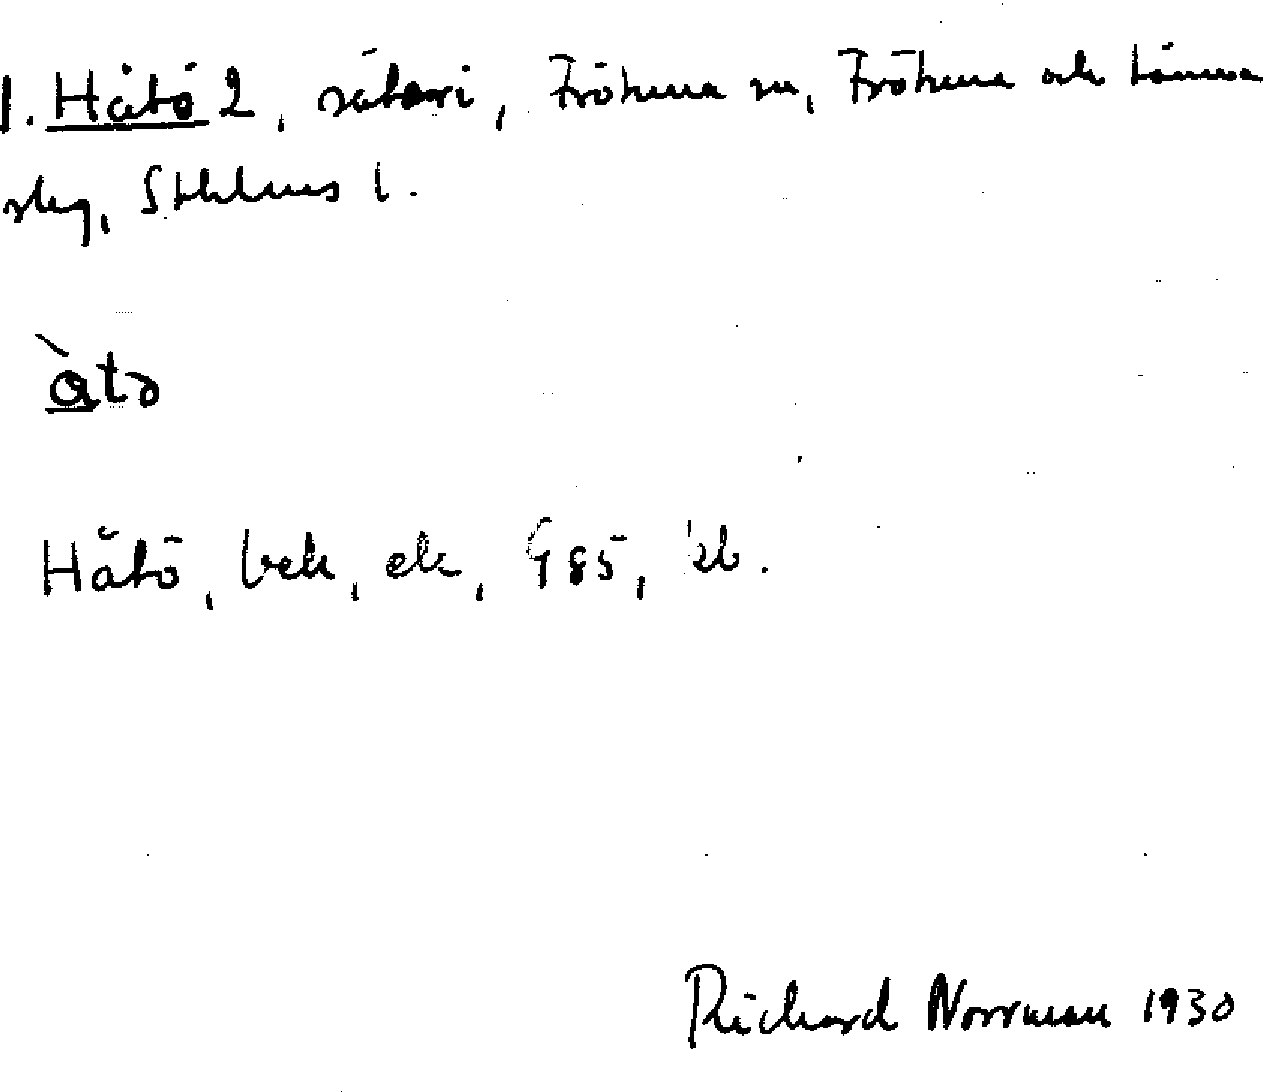 1. Håtö 2, säteri, Frötuna sn, Frötuna och Länna
skg, Sthlms l.
àtə
Håtö, bek, ek, G 85, kb.
Richard Norrman 1930